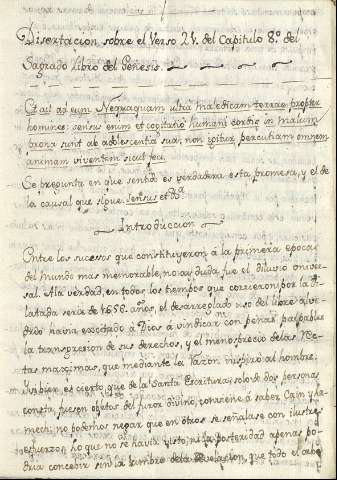 Disertacion sobre el Verso 21. del Capitulo 8.º del
Sagrado Libro del Genesis.
Et ait ad eum Nequaquam ultra maledicam terrae propter
homines: sensus enim et cogitatio humani cordis in malum
prona sunt ab adolescentia sua; non igitur percutiam omnem
animam viventem sicut feci.
Se pregunta en que sentido es verdadera esta promesa, y el de
la causal que sigue Sensus et ª
Introduccion
Entre los sucesos que constituyeron á la primera epoca
del mundo mas memorable, no ay duda, fue el diluvio univer-
sal. A la verdad, en todos los tiempos que corrieron por la di-
latada serie de 1656. años, el desarreglado uso del libre alve-
drio havia excitado á Dios á vindicar con penas palpables
la transgresion de sus derechos, y el menosprecio de las rec-
tas maximas, que mediante la razon inspiró al hombre.
Y si bien es cierto, que de la Santa Escritura, solo de dos personas
consta, fuesen objetos del furor divino, conviene á saber, Cayn y La-
mech; no podemos negar que en otros se señalase con ilustres
esfuerzos lo que no se havia visto, ni la posteridad apenas po-
dria concebir sin la lumbre de la Revelacion, que todo el orbe